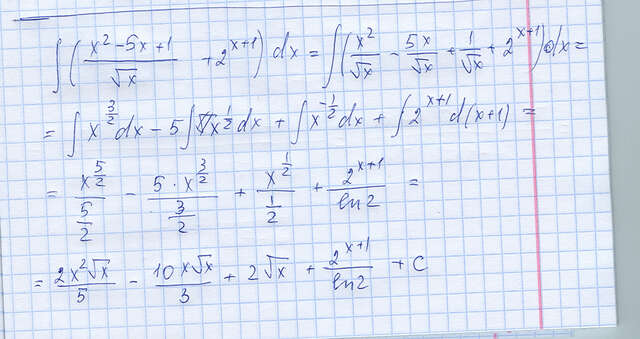 ∫ ( (x² - 5x + 1)/√x + 2^(x+1) ) dx = ∫ ( x²/√x - 5x/√x + 1/√x + 2^(x+1) ) dx =
= ∫ x^(3/2) dx - 5 ∫ x^(1/2) dx + ∫ x^(-1/2) dx + ∫ 2^(x+1) d(x+1) =
= x^(5/2)/(5/2) - 5 · x^(3/2)/(3/2) + x^(1/2)/(1/2) + 2^(x+1)/ln2 =
= 2x²√x/5 - 10x√x/3 + 2√x + 2^(x+1)/ln2 + C